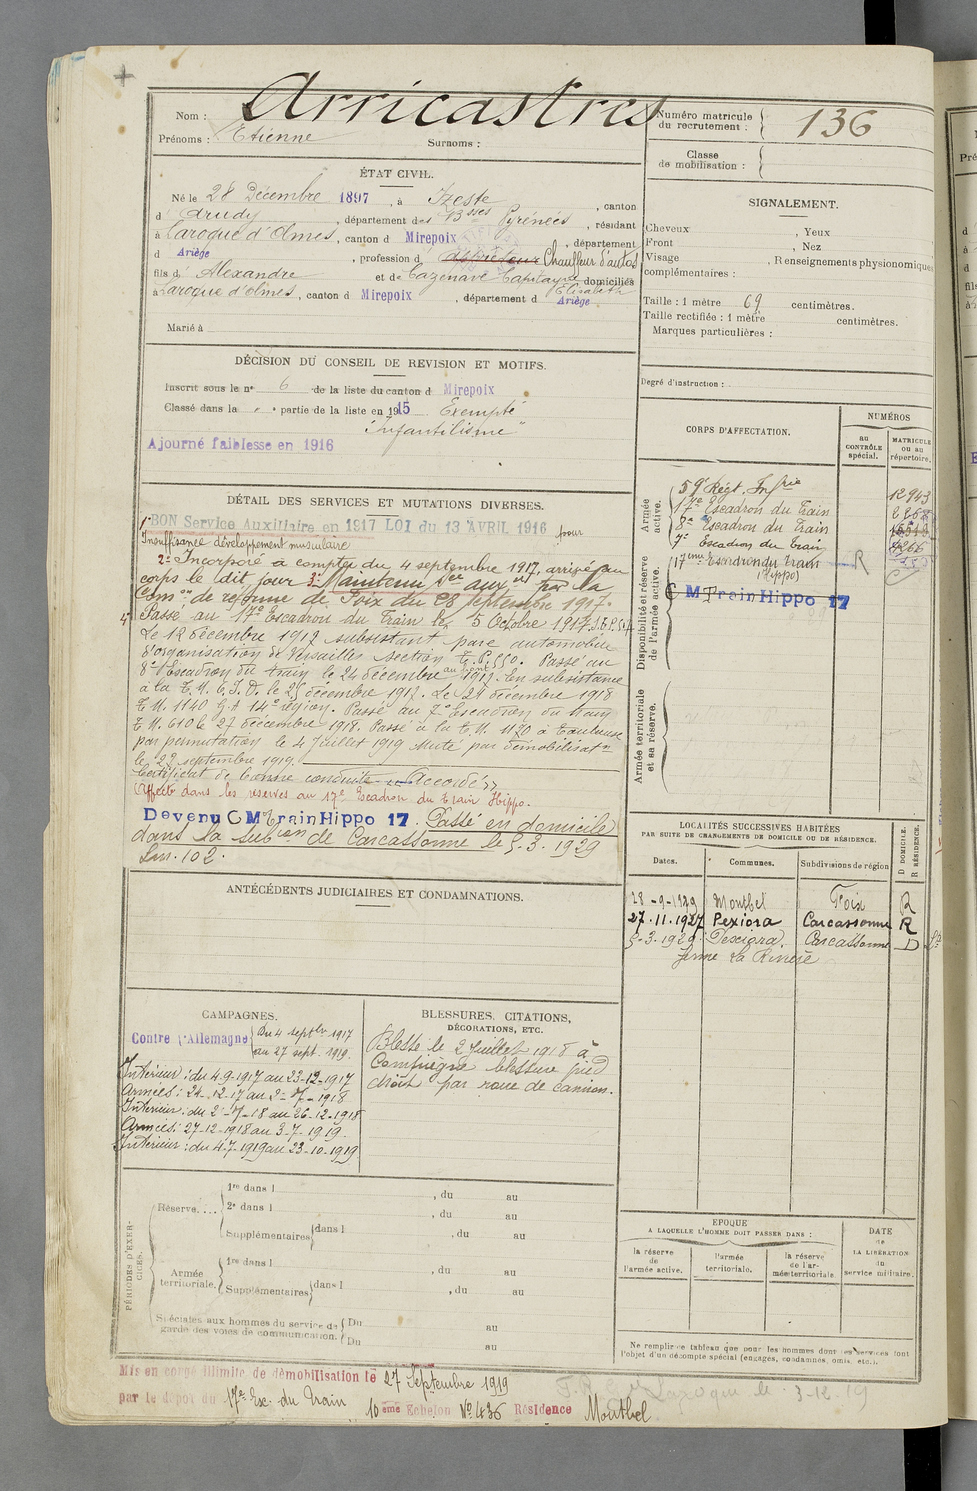 Arricastres
Nom :
Prénoms : Etienne
Surnoms :
Numéro matricule
du recrutement :
136
Classe
de mobilisation :
ÉTAT CIVIL.
Né le 28 Décembre 1897, à Izeste, canton
d'Arudy, département des Bsses Pyrénées, résidant
à Laroque d'Olmes, canton d Mirepoix, département
d Ariège, profession d Chauffeur d'autos
fils d'Alexandre et de Cazenave Capitayne Elisabeth domiciliés
à Laroque d'Olmes, canton d Mirepoix, département d Ariège
Marié à
SIGNALEMENT.
Cheveux , Yeux
Front , Nez
Visage , Renseignements physionomiques
complémentaires :
Taille : 1 mètre 69 centimètres.
Taille rectifiée : 1 mètre centimètres.
Marques particulières :
DÉCISION DU CONSEIL DE REVISION ET MOTIFS.
Inscrit sous le n° 6 de la liste du canton d Mirepoix
Classé dans la " partie de la liste en 1915 Exempté
"Infantilisme"
Ajourné faiblesse en 1916
Degré d'instruction :
CORPS D'AFFECTATION.
NUMÉROS
au
CONTRÔLE
spécial.
MATRICULE
ou au
répertoire.
Armée
active.
59e Régt. Infrie 12943
17e Escadron du Train
8e Escadron du Train
7e Escadron du Train
Disponibilité et réserve
de l'armée active.
17eme Escadron du Train R
(Hippo)
C M Train Hippo 17
Armée territoriale
et sa réserve.
DÉTAIL DES SERVICES ET MUTATIONS DIVERSES.
1° BON Service Auxiliaire en 1917 LOI du 13 AVRIL 1916 pour
Insuffisance développement musculaire
2° Incorporé à compter du 4 septembre 1917, arrivé au
corps le dit jour 3° Maintenu Sce aux. par la
Comon de réforme de Foix du 28 septembre 1917.
4° Passé au 17e Escadron du Train le 5 Octobre 1917
Le 12 décembre 1917 subsistant parc automobile
d'organisation de Versailles section T.P. 550. Passé au
8e Escadron du train le 24 décembre 1917. En subsistance
à la T.M. 6. J. D. le 25 décembre 1917. Le 24 décembre 1918
T.M. 1140 G.A 14e région. Passé au 7e Escadron du train
T.M. 610 le 27 décembre 1918. Passé à la T.M. 1170 à Toulouse
par permutation le 4 Juillet 1919 Muté par démobilisatn
le 29 septembre 1919.
Certificat de bonne conduite "Accordé"
Affecté dans les réserves au 17e Escadron du Train Hippo.
Devenu C M Train Hippo 17. Passé en domicile
dans la subon de Carcassonne le 5-3-1929
102.
LOCALITÉS SUCCESSIVES HABITÉES
PAR SUITE DE CHANGEMENTS DE DOMICILE OU DE RÉSIDENCE.
Dates. Communes. Subdivisions de région
D DOMICILE.
R RÉSIDENCE.
28-9-1919 Montbel Foix R
27.11.1927 Pexiora Carcassonne R
5.3.1929 Pexiora. Carcassonne D
ferme La
ANTÉCÉDENTS JUDICIAIRES ET CONDAMNATIONS.
CAMPAGNES.
Contre l'Allemagne
Du 4 septbre 1917
au 27 sept. 1919.
Intérieur : du 4-9-1917 au 23-12-1917
Armées : 24-12-17 au 2-7-1918
Intérieur : du 2-7-18 au 26-12-1918
Armées : 27-12-1918 au 3-7-1919.
Intérieur : du 4-7-1919 au 23-10-1919
BLESSURES, CITATIONS,
DÉCORATIONS, ETC.
Blessé le 2 Juillet 1918 à
Compiègne blessure pied
droit par roue de camion.
PÉRIODES D'EXERCICES.
Réserve....
1re dans l , du au
2e dans l , du au
Supplémentaires dans l , du au
Armée
territoriale.
1re dans l , du au
Supplémentaires dans l , du au
Spéciales aux hommes du service de
garde des voies de communication.
Du au
Du au
EPOQUE
A LAQUELLE L'HOMME DOIT PASSER DANS :
la réserve
de
l'armée active.
l'armée
territoriale.
la réserve
de l'armée territoriale
DATE
de
LA LIBÉRATION
du
service militaire.
Ne remplir ce tableau que pour les hommes dont les services font
l'objet d'un décompte spécial (engagés, condamnés, omis, etc.).
Mis en congé illimité de démobilisation le 27 Septembre 1919
par le dépôt du 17e Ex. du Train
10eme Echelon No 436 Résidence Montbel
3-12-19